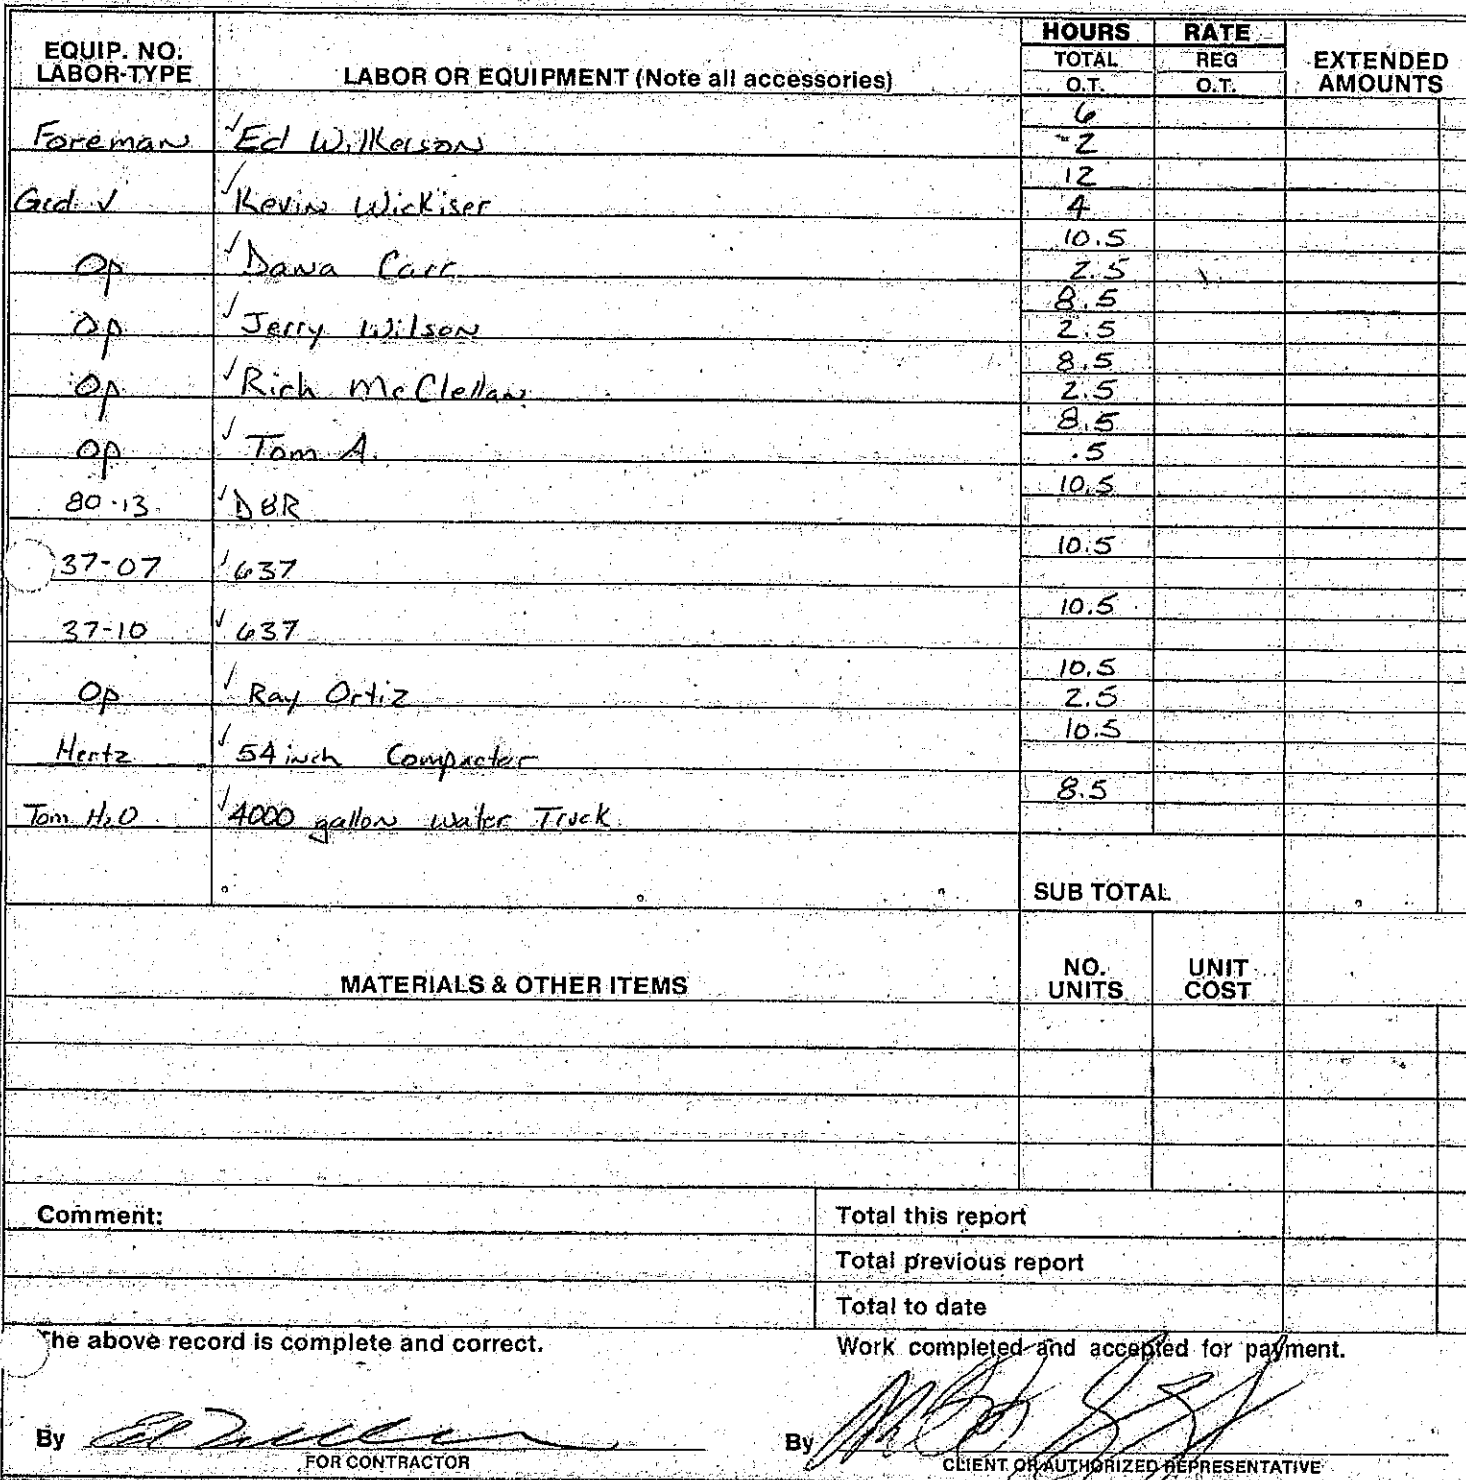 EQUIP. NO. LABOR-TYPE LABOR OR EQUIPMENT (Note all accessories) HOURS TOTAL O.T. RATE REG O.T. EXTENDED AMOUNTS
Foreman ✓Ed Wilkerson 6
2
Grd ✓ ✓Kevin Wickiser 12
4
Op ✓Dana Carr 10.5
2.5
Op ✓Jerry Wilson 8.5
2.5
Op ✓Rich McClellan 8.5
2.5
Op ✓Tom A. 8.5
.5
80-13 ✓D8R 10.5
37-07 ✓637 10.5
37-10 ✓637 10.5
Op ✓Ray Ortiz 10.5
2.5
Hertz ✓54 inch Compacter 10.5
Tom H2O ✓4000 gallon water Truck 8.5
SUB TOTAL
MATERIALS & OTHER ITEMS NO. UNITS UNIT COST
Comment: Total this report
Total previous report
Total to date
The above record is complete and correct. Work completed and accepted for payment.
By By
FOR CONTRACTOR CLIENT OR AUTHORIZED REPRESENTATIVE